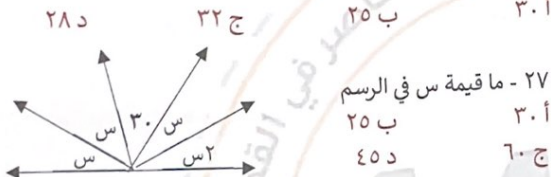 أ ٣٠ ب ٢٥ ج ٣٢ د ٢٨
٢٧ - ما قيمة س في الرسم
أ ٣٠ ب ٢٥
ج ٦٠ د ٤٥
س ٣٠ س
س ٢س